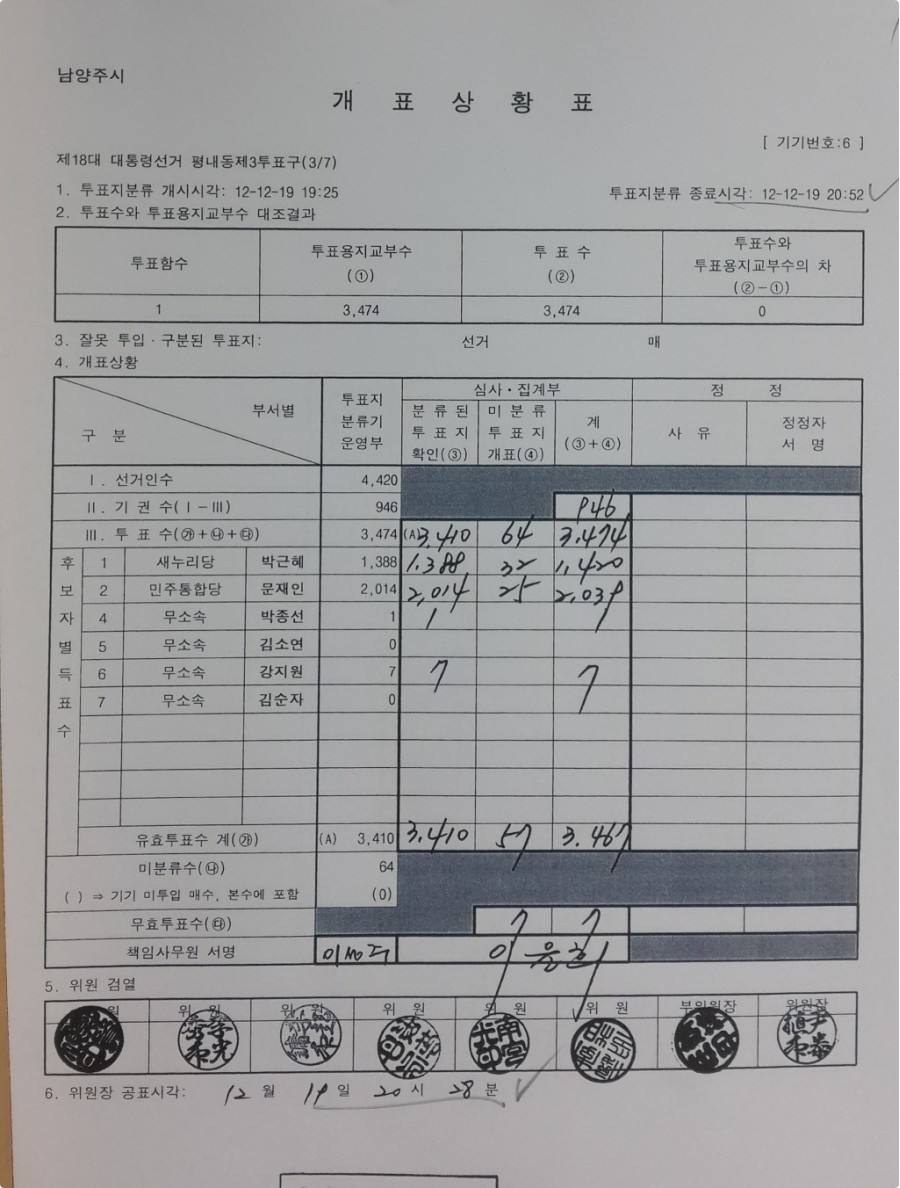 남양주시
개 표 상 황 표
[ 기기번호:6 ]
제18대 대통령선거 평내동제3투표구(3/7)
1. 투표지분류 개시시각: 12-12-19 19:25 투표지분류 종료시각: 12-12-19 20:52
2. 투표수와 투표용지교부수 대조결과
투표함수 투표용지교부수 (①) 투 표 수 (②) 투표수와 투표용지교부수의 차 (②-①)
1 3,474 3,474 0
3. 잘못 투입·구분된 투표지: 선거 매
4. 개표상황
부서별 구 분 투표지 분류기 운영부 심사·집계부 정 정
분 류 된 투 표 지 확인(③) 미 분 류 투 표 지 개표(④) 계 (③+④) 사 유 정정자 서 명
Ⅰ. 선거인수 4,420
Ⅱ. 기 권 수(Ⅰ-Ⅲ) 946 946
Ⅲ. 투 표 수(㉮+㉯+㉰) 3,474 (A) 3.410 64 3.474
후보자별득표수
1 새누리당 박근혜 1,388 1.388 32 1,420
2 민주통합당 문재인 2,014 2,014 25 2,039
4 무소속 박종선 1 1 1
5 무소속 김소연 0
6 무소속 강지원 7 7 7
7 무소속 김순자 0
유효투표수 계(㉮) (A) 3,410 3.410 57 3.467
미분류수(㉯) 64
( ) ⇒ 기기 미투입 매수, 본수에 포함 (0)
무효투표수(㉰) 7 7
책임사무원 서명
5. 위원 검열
위 원 위 원 위 원 위 원 위 원 위 원 부위원장 위원장
6. 위원장 공표시각: 12 월 19 일 20 시 28 분